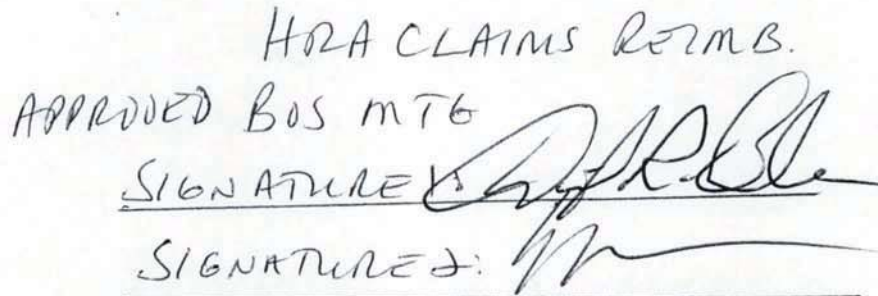 HRA CLAIMS REIMB.
APPROVED BOS MTG
SIGNATURE 1:
SIGNATURE 2: